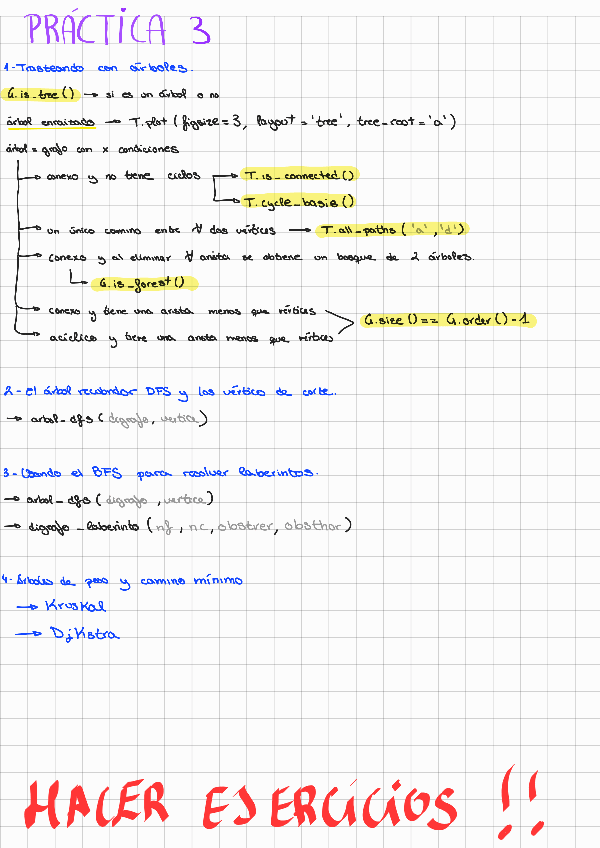 PRÁCTICA 3
1-Trasteando con árboles.
G.is_tree() → si es un árbol o no
árbol enraizado → T.plot (figsize=3, layout='tree', tree-root='a')
árbol = grafo con x condiciones
→ conexo y no tiene ciclos → T.is_connected()
→ T.cycle_basis()
→ un único camino entre ∀ dos vértices → T.all_paths('a','d')
→ conexo y al eliminar ∀ arista se obtiene un bosque de 2 árboles.
→ G.is_forest()
→ conexo y tiene una arista menos que vértices
G.size() == G.order()-1
→ acíclico y tiene una arista menos que vértices
2-El árbol recubridor DFS y los vértices de corte.
→ arbol_dfs (digrafo, vertice)
3-Usando el BFS para resolver laberintos.
→ arbol_dfs (digrafo, vertice)
→ digrafo_laberinto (nf, nc, obstver, obsthor)
4-Árboles de peso y camino mínimo
→ Kruskal
→ Djkstra
HACER EJERCICIOS !!